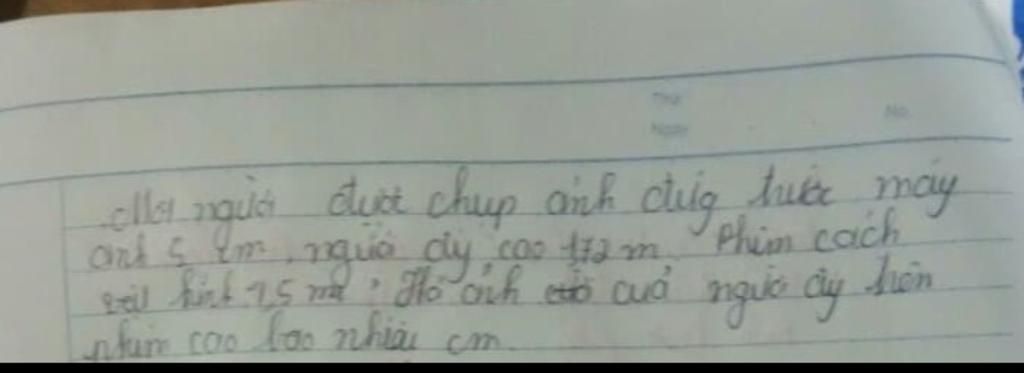 Thứ
Ngày
No.
Một người được chụp ảnh đứng trước máy
ảnh 5 m, người ấy cao m. Phim cách
hình mm. Hỏi ảnh của người ấy trên
phim cao bao nhiêu cm